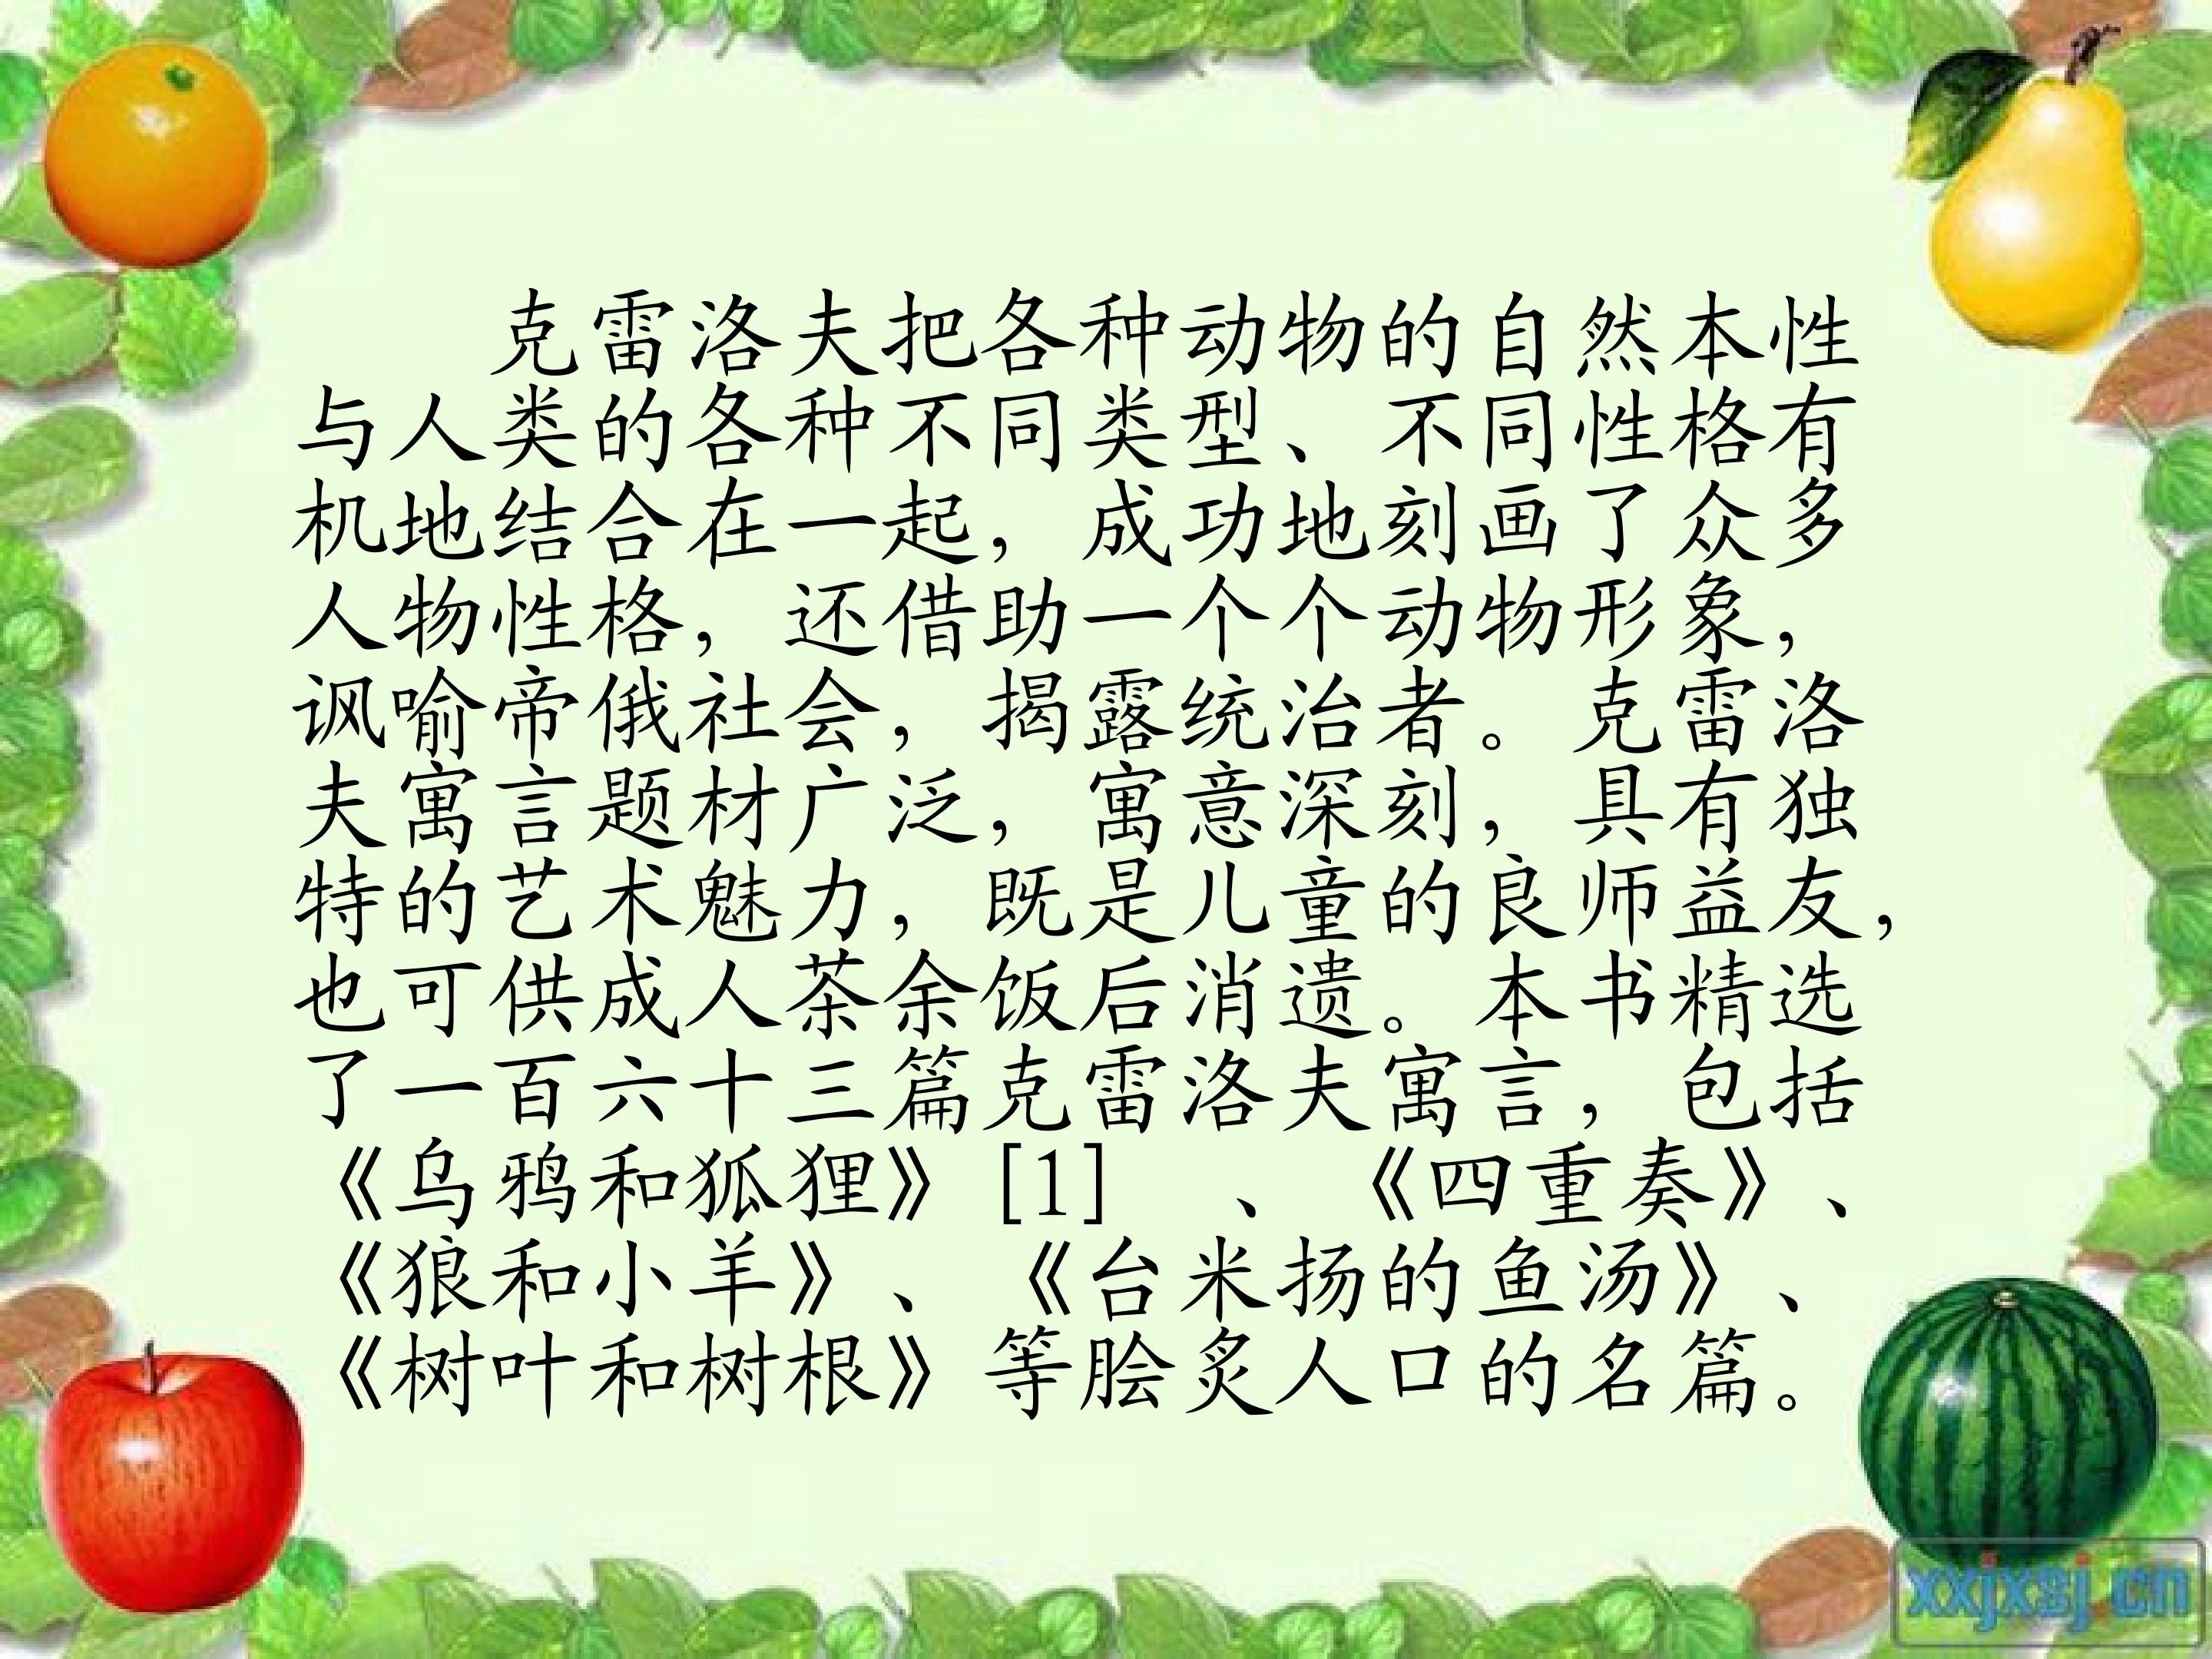 克雷洛夫把各种动物的自然本性
与人类的各种不同类型、不同性格有
机地结合在一起，成功地刻画了众多
人物性格，还借助一个个动物形象，
讽喻帝俄社会，揭露统治者。克雷洛
夫寓言题材广泛，寓意深刻，具有独
特的艺术魅力，既是儿童的良师益友，
也可供成人茶余饭后消遗。本书精选
了一百六十三篇克雷洛夫寓言，包括
《乌鸦和狐狸》[1] 、《四重奏》、
《狼和小羊》、《台米扬的鱼汤》、
《树叶和树根》等脍炙人口的名篇。
xxjxsj.cn